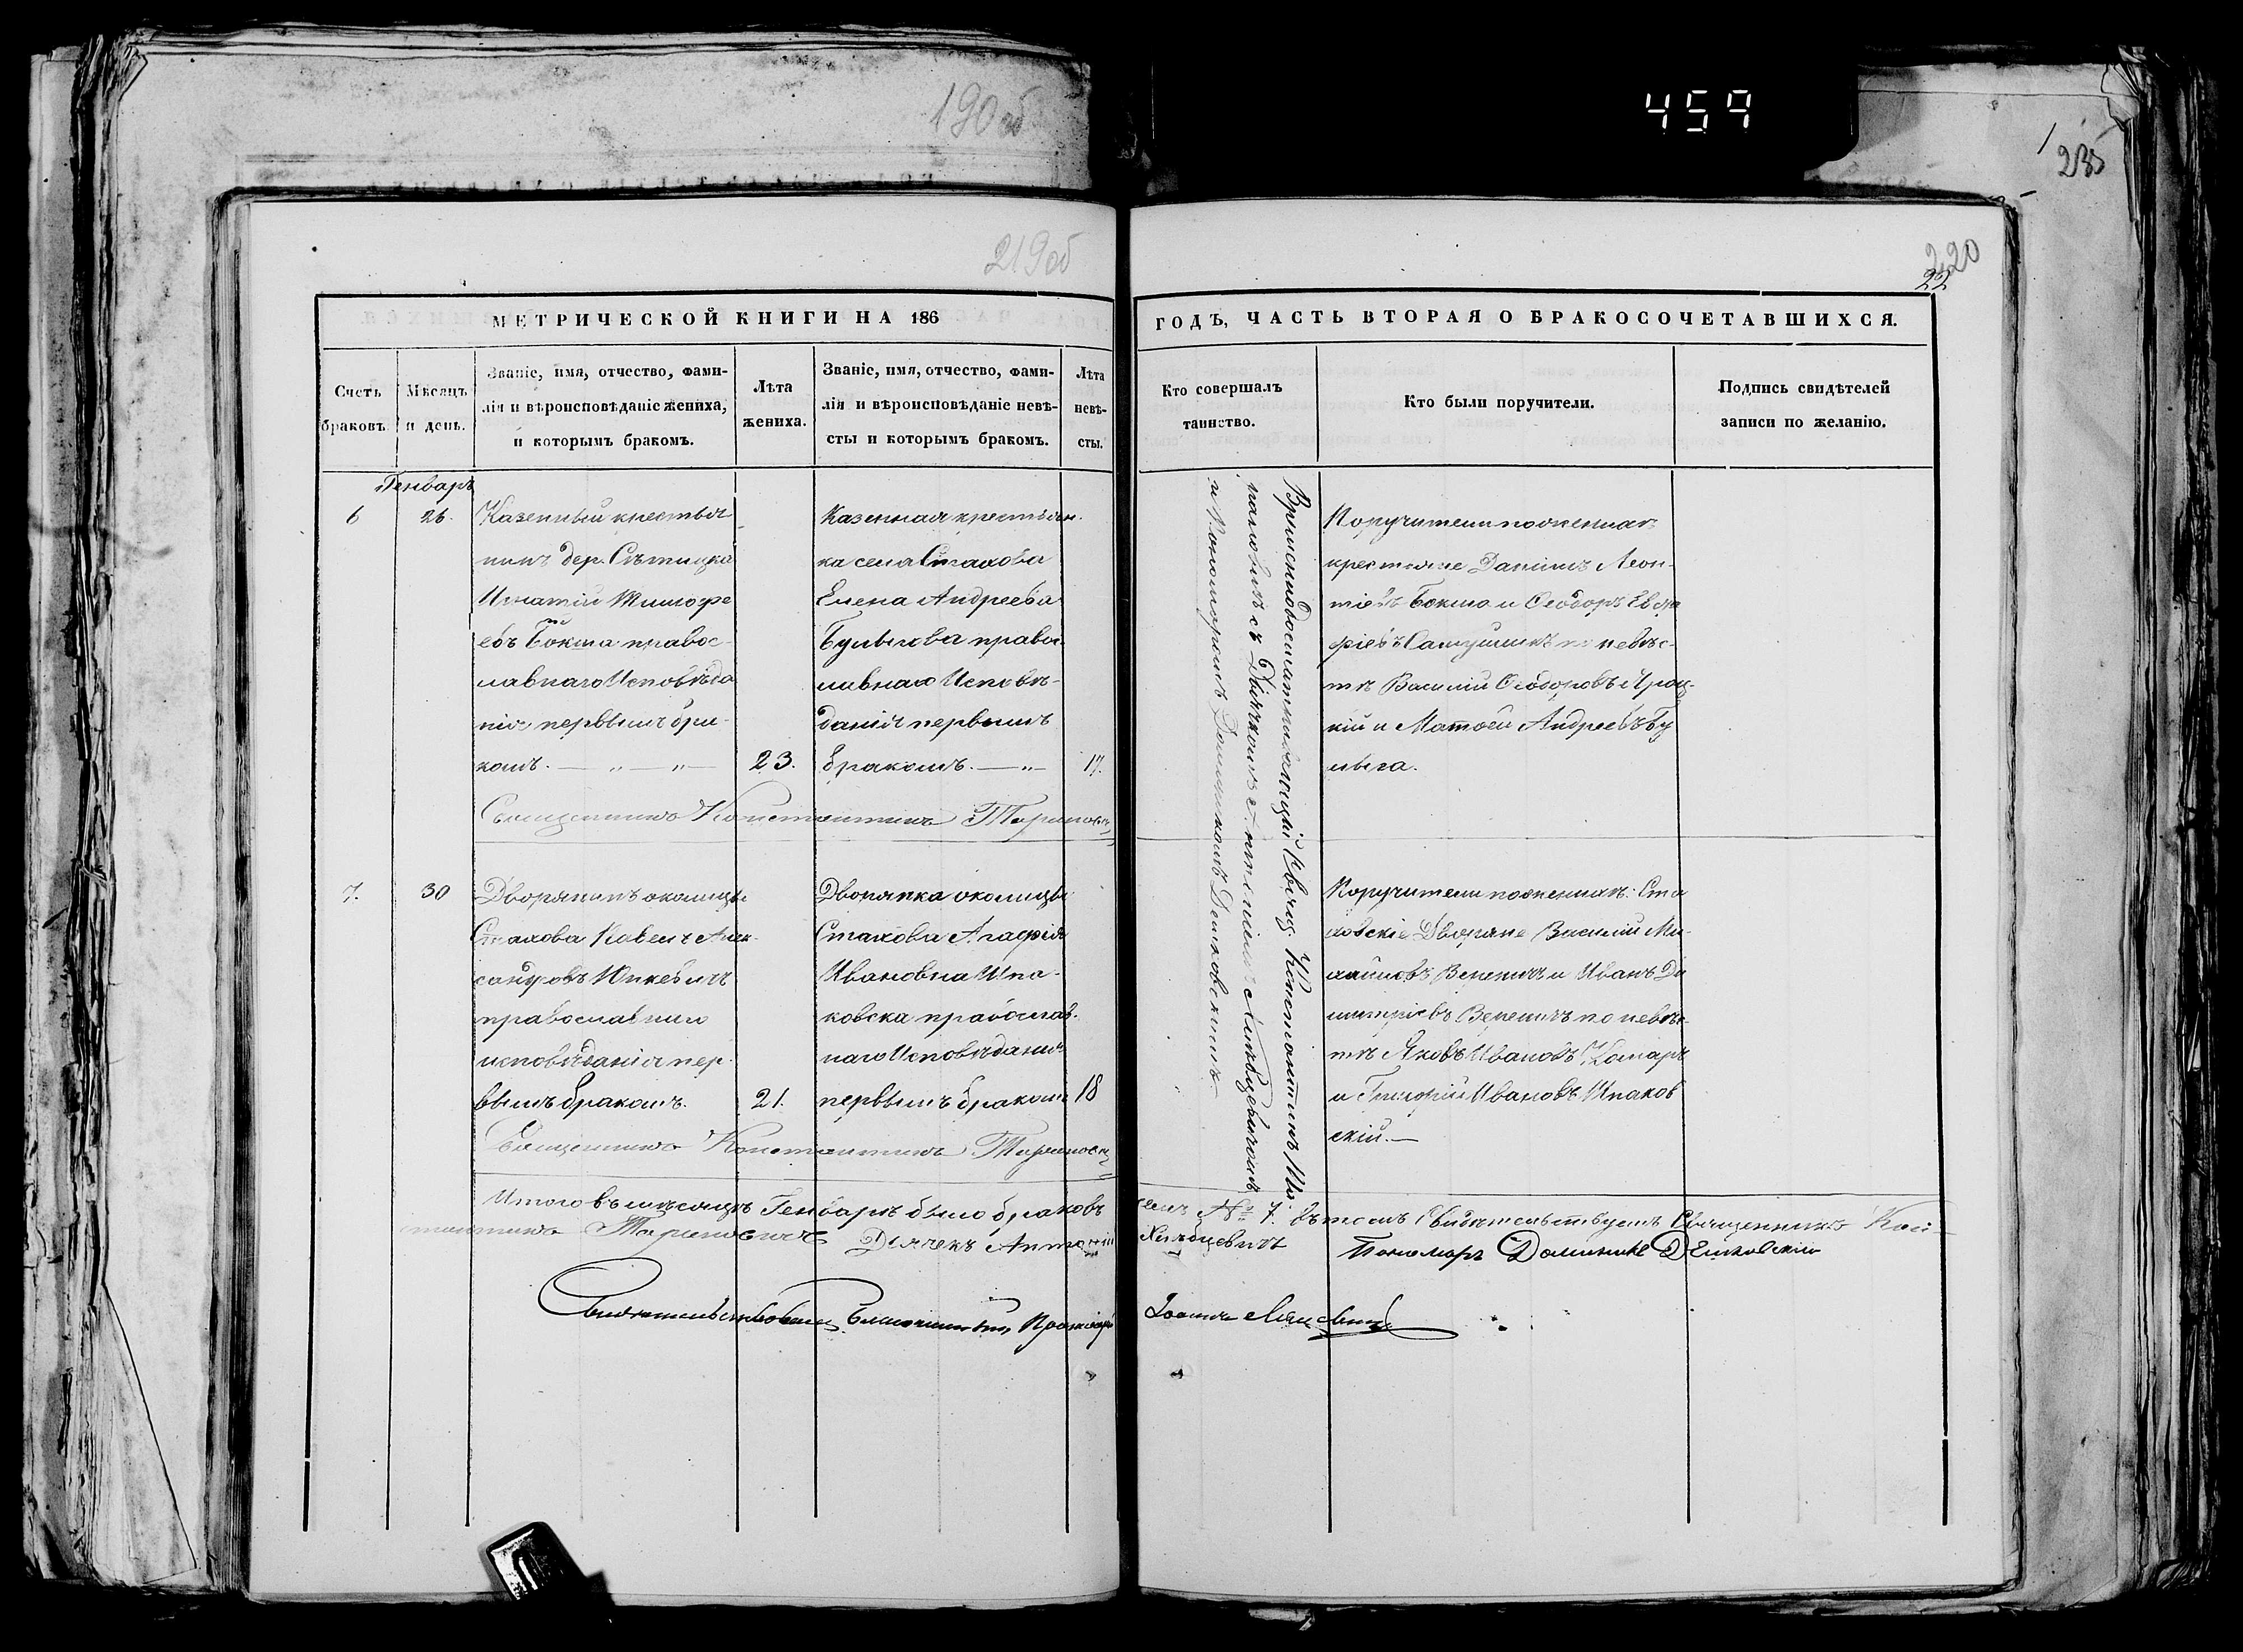 190об
459
235
219об
220
22
МЕТРИЧЕСКОЙ КНИГИ НА 186
ГОДЪ, ЧАСТЬ ВТОРАЯ О БРАКОСОЧЕТАВШИХСЯ.
Счетъ браковъ.
Мѣсяцъ и день.
Званіе, имя, отчество, фами-
лія и вѣроисповѣданіе жениха,
и которымъ бракомъ.
Лѣта
жениха.
Званіе, имя, отчество, фами-
лія и вѣроисповѣданіе невѣ-
сты и которымъ бракомъ.
Лѣта
невѣ-
сты.
Кто совершалъ
таинство.
Кто были поручители.
Подпись свидѣтелей
записи по желанію.
Генварь
6
26.
Казенный крестья
нинъ дер. Сѣтицка
Игнатій Тимофе
евъ Бокша правос-
лавнаго Исповѣда
нія первымъ бра-
комъ.
23.
Казенная крестьян.
ка села Стахова
Елена Андреева
Булыгова правос
лавнаго Исповѣ-
данія первымъ
бракомъ.
17.
Священникъ Константинъ Тариновичъ
Поручители по женихѣ
крестьяне Даніилъ Леон-
тіевъ Бокша и Ѳеодоръ
по невѣс-
тѣ Василій Ѳеодоровъ
кій и Матѳей Андреевъ Бу
лыга.
7.
30
Дворянинъ околицы
Стахова Павелъ Алек-
сандровъ Юнкевичъ
православнаго
исповѣданія пер-
вымъ бракомъ.
21.
Дворянка околицы
Стахова Агафія
Ивановна Шпа-
ковска православ.
наго Исповѣданія
первымъ бракомъ
18
Священникъ Константинъ Тариновичъ
Поручители по женихѣ: Ста
ховскіе Дворяне Василій Ми-
хайловъ Вереничъ и Иванъ Ди
митріевъ Вереничъ по невѣс-
тѣ Яковъ Ивановъ Комаръ
и Григорій Ивановъ Шпаков
скій.
Итого въ мѣсяцѣ Генварѣ было браковъ
семъ № 7. въ томъ свидѣтельствуемъ Священникъ Кон-
стантинъ Тариновичъ Дьячекъ Антоній
Хлѣбцевичъ Пономарь Доминикъ Дешковскій
Свидѣтельствовалъ Благочинный Протоіерей
Іоаннъ